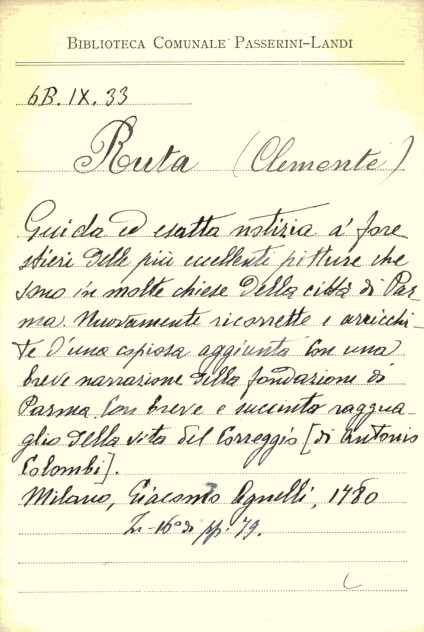 BIBLIOTECA COMUNALE PASSERINI-LANDI
6B. IX. 33
Ruta (Clemente)
Guida ed esatta notizia a' fore
stieri delle più eccellenti pitture che
sono in molte chiese della città di Par
ma. Nuovamente ricorrette e arricchi-
te d'una copiosa aggiunta con una
breve narrazione della fondazione di
Parma con breve e succinto raggua-
glio della vita del Correggio [di Antonio
Colombi].
Milano, Giacomo Agnelli, 1780
In-16° di pp. 79.